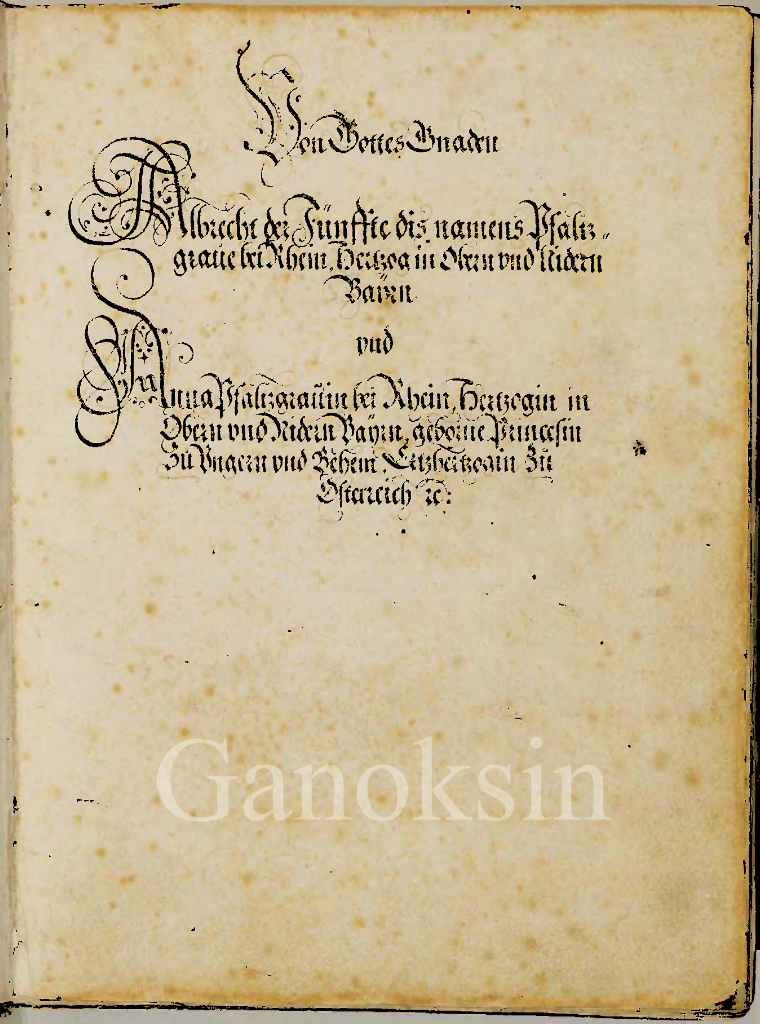 Von Gottes Gnaden
Albrecht der Fünffte dis namens Pfaltz-
graue bei Rhein, Hertzog in Obern vnd Nidern
Bayrn
vnd
Anna Pfaltzgräuin bei Rhein, Hertzogin in
Obern vnd Nidern Bayrn, geborne Princesin
Zu Vngern vnd Behem, Ertzhertzogin Zu
Osterreich ꝛc:
Ganoksin